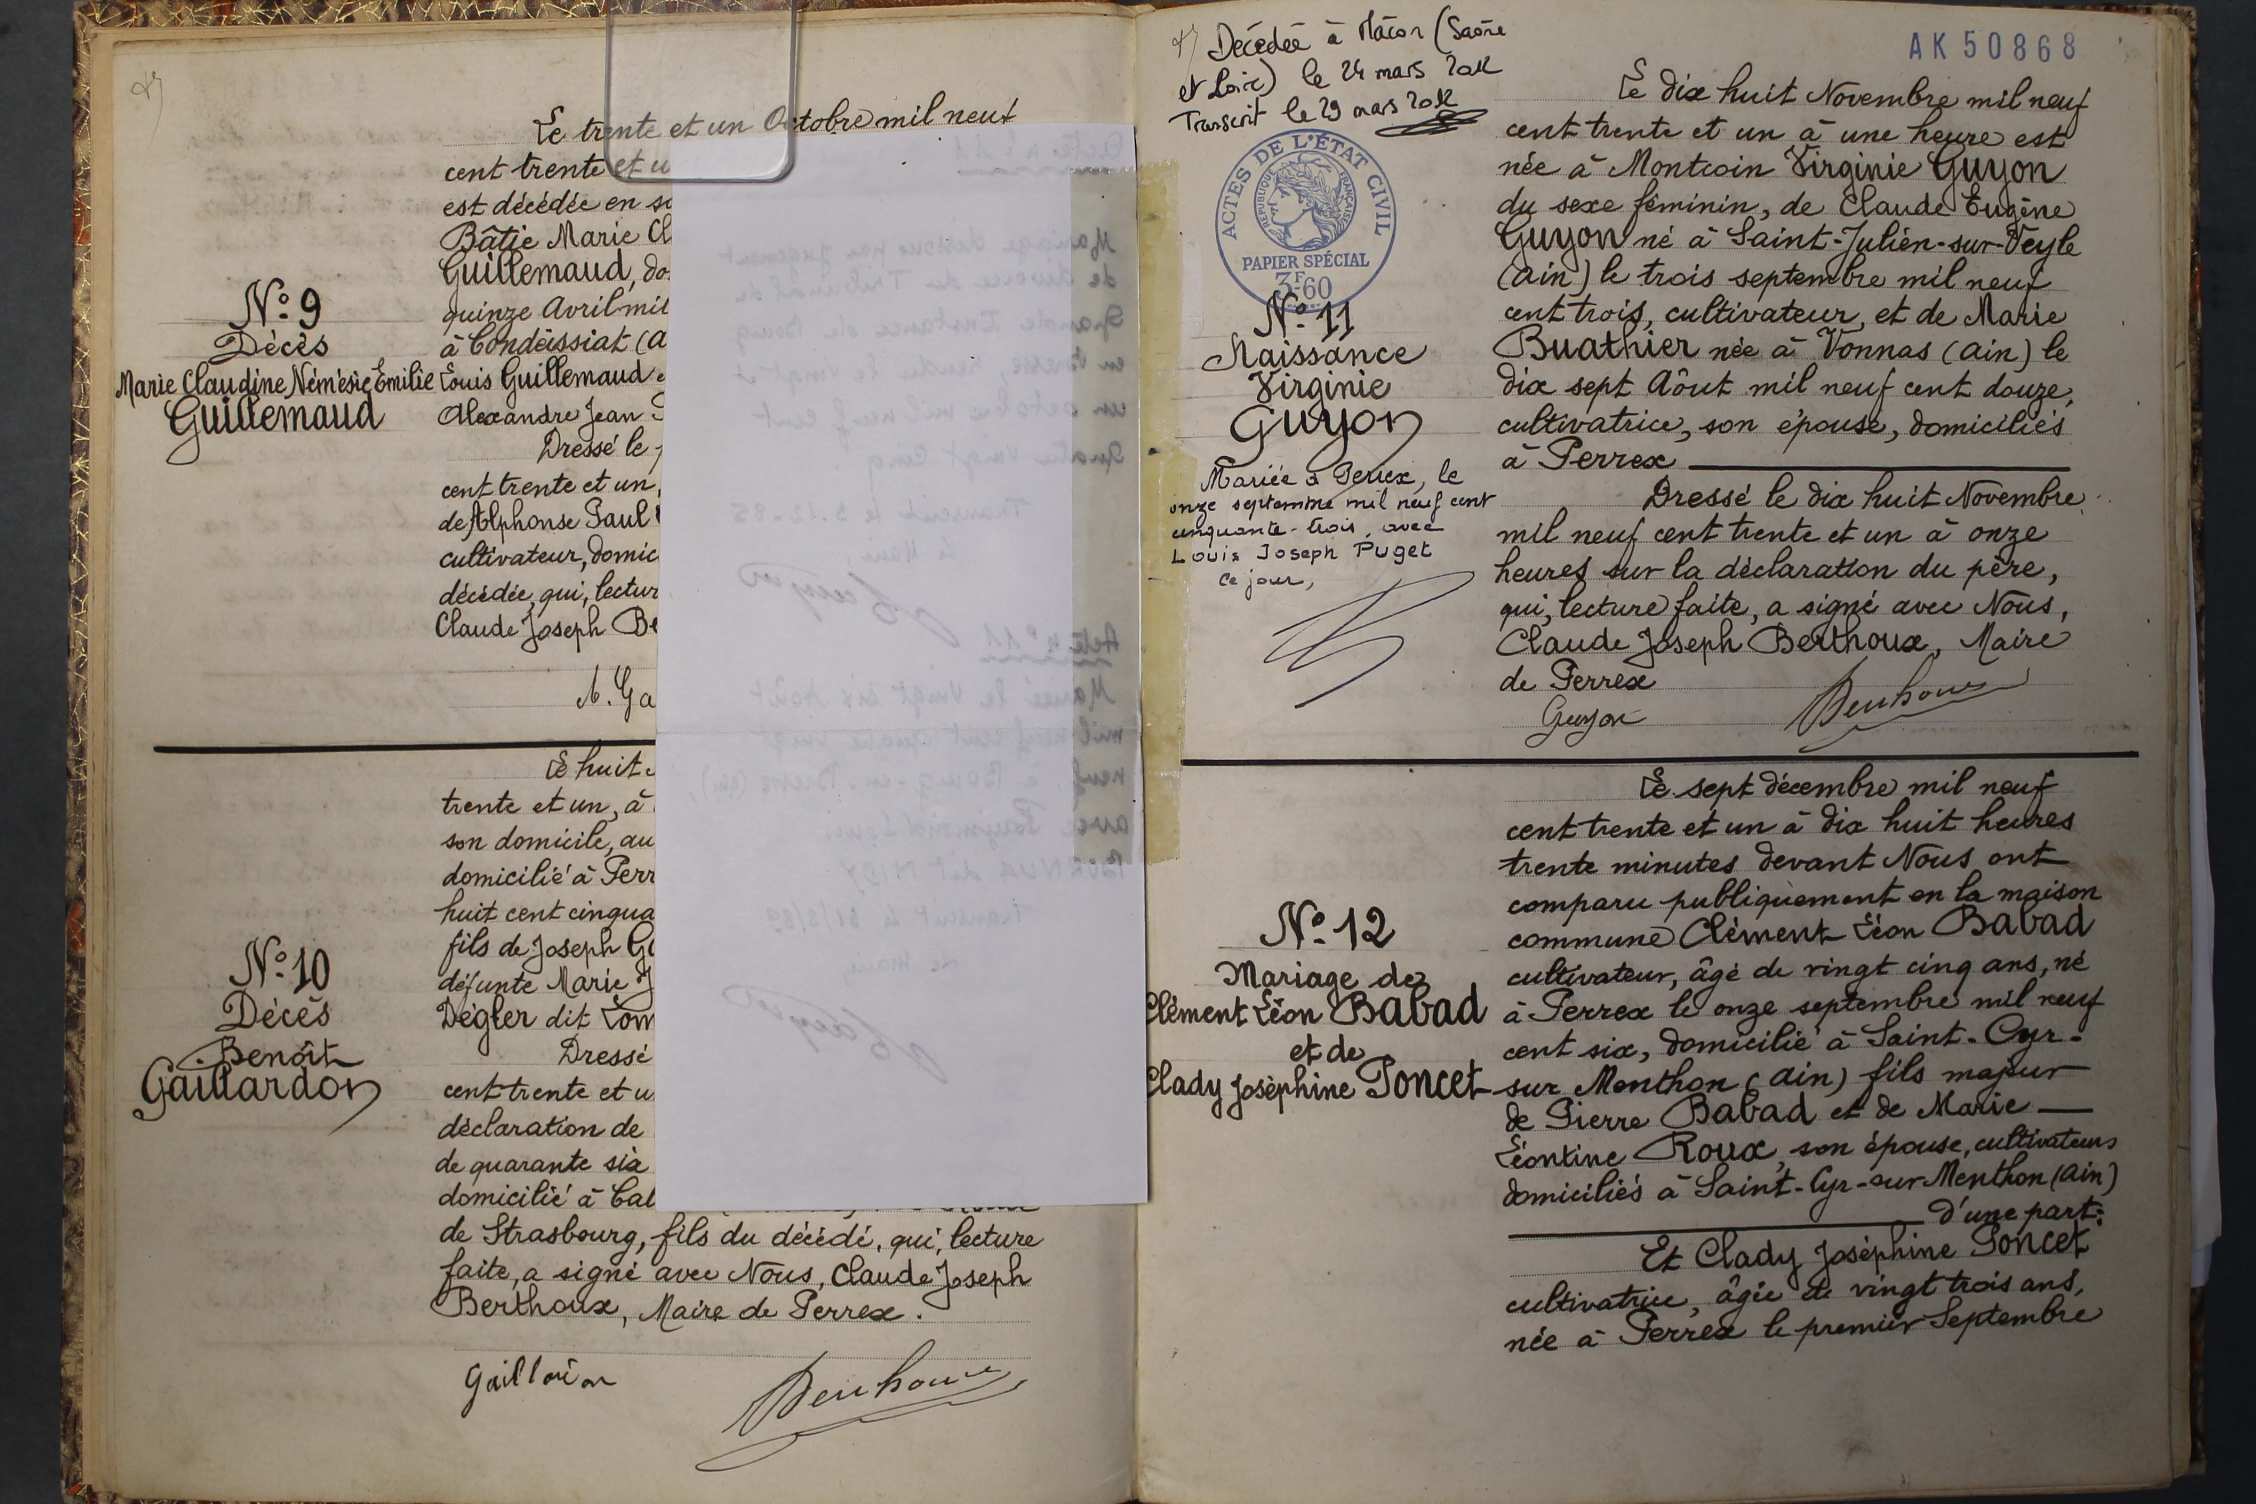 Le trente et un Octobre mil neuf
cent trente et u
est décédée en so
Bâtie Marie Cl
Guillemaud, do
quinze Avril mil
à Condeissiat (A
Louis Guillemaud
Alexandre Jean
Dressé le
cent trente et un
de Alphonse Paul
cultivateur, domic
décédée, qui, lectur
Claude Joseph Be
A. Ga
N° 9
Décès
Marie Claudine Némésie Emilie
Guillemaud
Le huit
trente et un, à
son domicile, au
domicilié à Perr
huit cent cinqua
fils de Joseph G
défunte Marie J
Dégler dit Lom
Dressé
cent trente et u
déclaration de
de quarante six
domicilié à Cal
de Strasbourg, fils du décédé, qui, lecture
faite, a signé avec Nous, Claude Joseph
Berthoux, Maire de Perrex.
N° 10
Décès
Benoît
Gaillardon
Décédée à Mâcon (Saône
et Loire) le 24 mars 2012
Transcrit le 29 mars 2012
ACTES DE L'ÉTAT CIVIL
RÉPUBLIQUE FRANÇAISE
PAPIER SPÉCIAL
3F60
N° 11
Naissance
Virginie
Guyon
Mariée à Perrex, le
onze septembre mil neuf cent
cinquante-trois, avec
Louis Joseph Puget
Ce jour,
AK50868
Le dix huit Novembre mil neuf
cent trente et un à une heure est
née à Montcoin Virginie Guyon
du sexe féminin, de Claude Eugène
Guyon né à Saint-Julien-sur-Veyle
(Ain) le trois septembre mil neuf
cent trois, cultivateur, et de Marie
Buathier née à Vonnas (Ain) le
dix sept Aôut mil neuf cent douze,
cultivatrice, son épouse, domiciliés
à Perrex
Dressé le dix huit Novembre
mil neuf cent trente et un à onze
heures sur la déclaration du père,
qui, lecture faite, a signé avec Nous,
Claude Joseph Berthoux, Maire
de Perrex
Guyon
N° 12
Mariage de
Clément Léon Babad
et de
Clady Joséphine Poncet
Le sept décembre mil neuf
cent trente et un à dix huit heures
trente minutes devant Nous ont
comparu publiquement en la maison
commune Clément Léon Babad
cultivateur, âgé de vingt cinq ans, né
à Perrex le onze septembre mil neuf
cent six, domicilié à Saint-Cyr-
sur Menthon (Ain) fils majeur
de Pierre Babad et de Marie
Léontine Roux, son épouse, cultivateurs
domiciliés à Saint-Cyr-sur Menthon (Ain)
d'une part;
Et Clady Joséphine Poncet
cultivatrice, âgée de vingt trois ans,
née à Perrex le premier Septembre